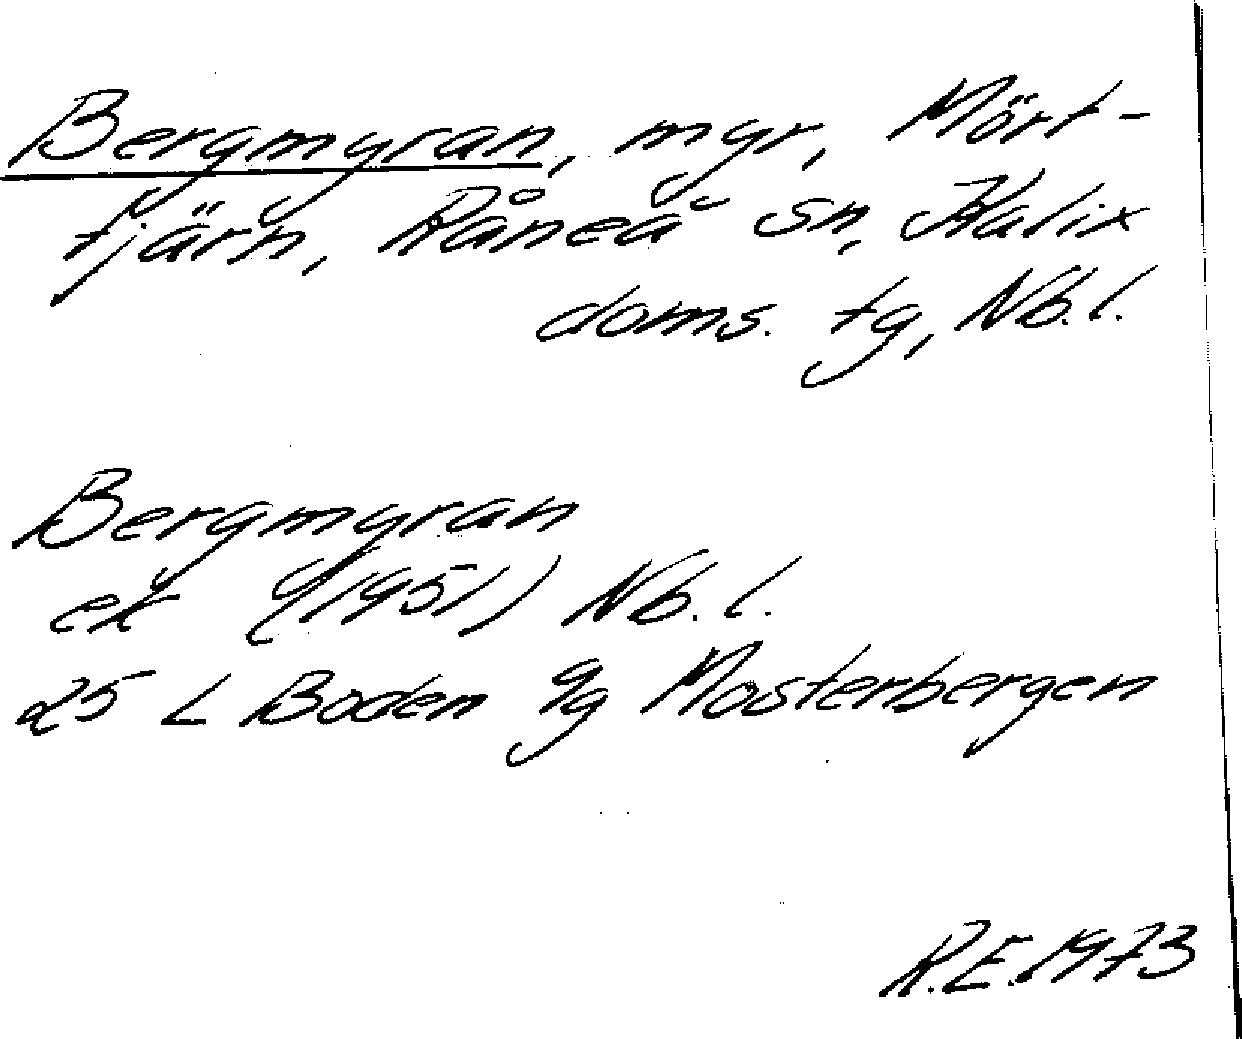 Bergmyran, myr, Mört-
tjärn, Råneå sn, Kalix
doms. tg, Nb.l.
Bergmyran
ek (1951) Nb. l.
25 L Boden 9g Mosterbergen
R.E.1973